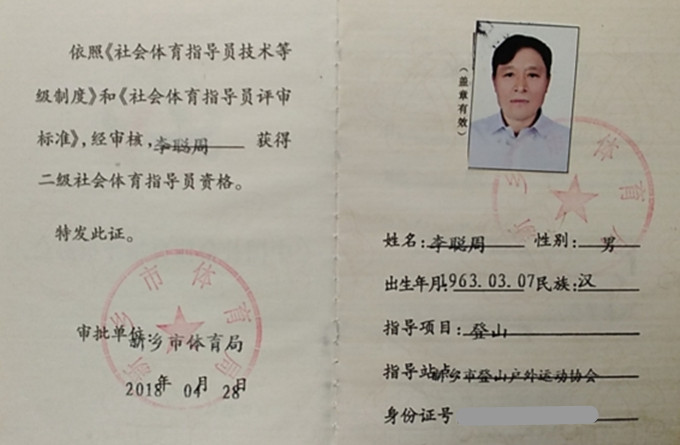 依照《社会体育指导员技术等
级制度》和《社会体育指导员评审
标准》，经审核，李聪周 获得
二级社会体育指导员资格。
特发此证。
审批单位：新乡市体育局
2018年 04月 28日
新乡市体育局
（盖章有效）
新乡市体育局
姓名：李聪周 性别：男
出生年月：1963.03.07民族：汉
指导项目：登山
指导站点：新乡市登山户外运动协会
身份证号